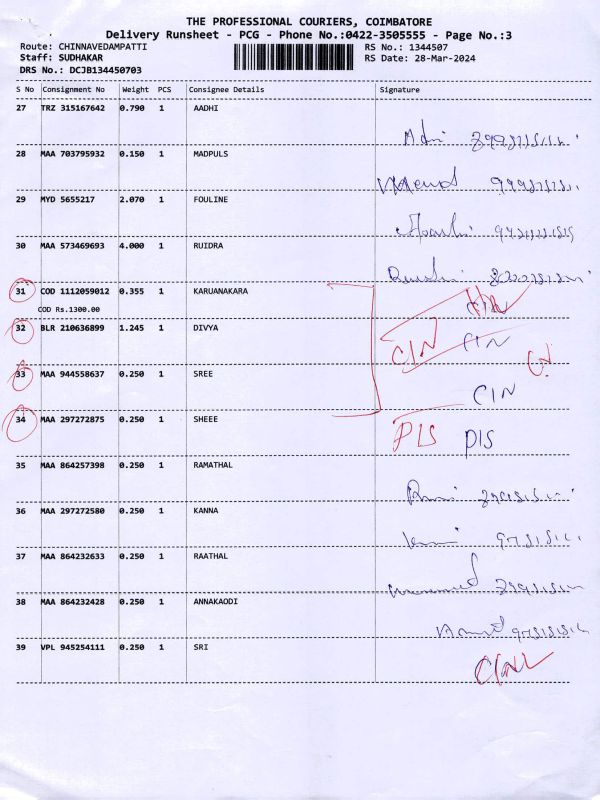 THE PROFESSIONAL COURIERS, COIMBATORE
Delivery Runsheet - PCG - Phone No.:0422-3505555 - Page No.:3
Route: CHINNAVEDAMPATTI RS No.: 1344507
Staff: SUDHAKAR RS Date: 28-Mar-2024
DRS No.: DCJB134450703
S No Consignment No Weight PCS Consignee Details Signature
27 TRZ 315167642 0.790 1 AADHI
28 MAA 703795932 0.150 1 MADPULS
29 MYD 5655217 2.070 1 FOULINE
30 MAA 573469693 4.000 1 RUIDRA
31 COD 1112059012 0.355 1 KARUNAKARA
COD Rs.1300.00
32 BLR 210636899 1.245 1 DIVYA CIN CIN
33 MAA 944558637 0.250 1 SREE CIN
34 MAA 297272875 0.250 1 SHEEE DIS DIS
35 MAA 864257398 0.250 1 RAMATHAL
36 MAA 297272580 0.250 1 KANNA
37 MAA 864232633 0.250 1 RAATHAL
38 MAA 864232428 0.250 1 ANNAKAODI
39 VPL 945254111 0.250 1 SRI